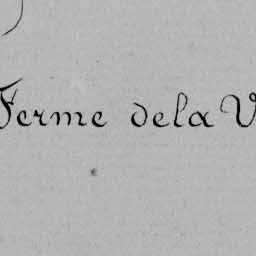 Ferme dela V